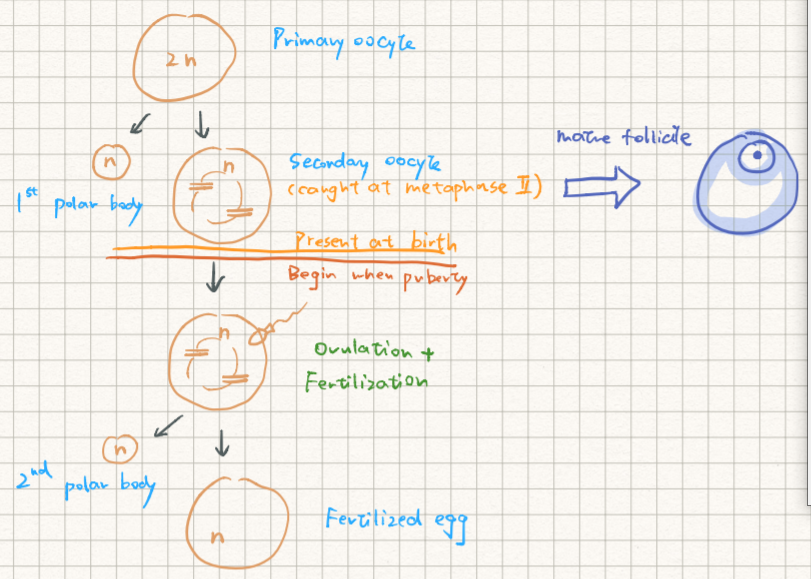 2n
Primary oocyte
n
1st polar body
n
Secondary oocyte
(caught at metaphase II)
matue follicle
Present at birth
Begin when puberty
n
Ovulation +
Fertilization
n
2nd polar body
n
Fertilized egg